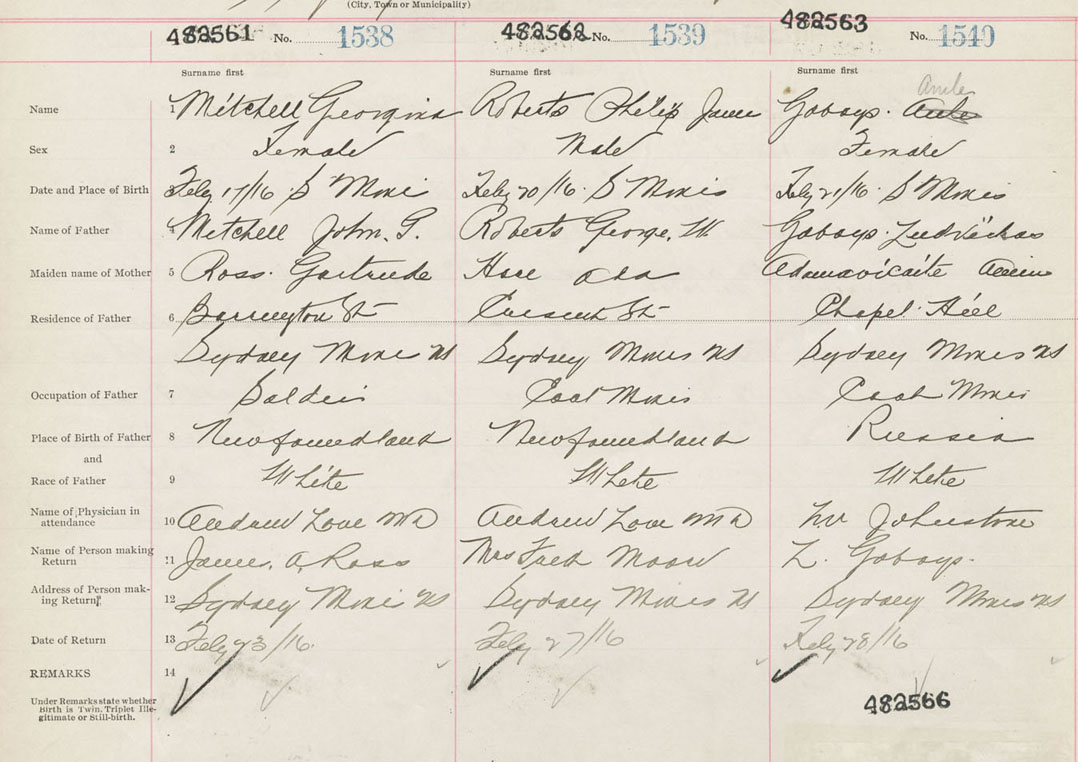 (City, Town or Municipality)
482561 No. 1538 482562 No. 1539 482563 No. 1540
Surname first Surname first Surname first
Amle
Name 1 Mitchell Georgina Roberts Philip James Gobsys.
Sex 2 Female Male Female
Date and Place of Birth 3 Feby 17/16 S Mines Feby 20/16 S Mines Feby 21/16 S Mines
Name of Father 4 Mitchell John. G. Roberts George. W Gobsys Ludvickas
Maiden name of Mother 5 Ross Gertrude Hare Ada Adamavicaite
Residence of Father 6 Barrington St Crescent St Chapel Hill
Sydney Mines NS Sydney Mines NS Sydney Mines NS
Occupation of Father 7 Soldier Coal Miner Coal Miner
Place of Birth of Father 8 Newfoundland Newfoundland Russia
and
Race of Father 9 White White White
Name of Physician in attendance 10 Andrew Love MD Andrew Love MD Dr Johnstone
Name of Person making Return 11 James. A. Ross Mrs Fred Moore L. Gobsys.
Address of Person making Return 12 Sydney Mines NS Sydney Mines N Sydney Mines NS
Date of Return 13 Feby 23/16 Feby 27/16 Feby 28/16
REMARKS 14
Under Remarks state whether
Birth is Twin, Triplet Ille-
gitimate or Still-birth.
482566